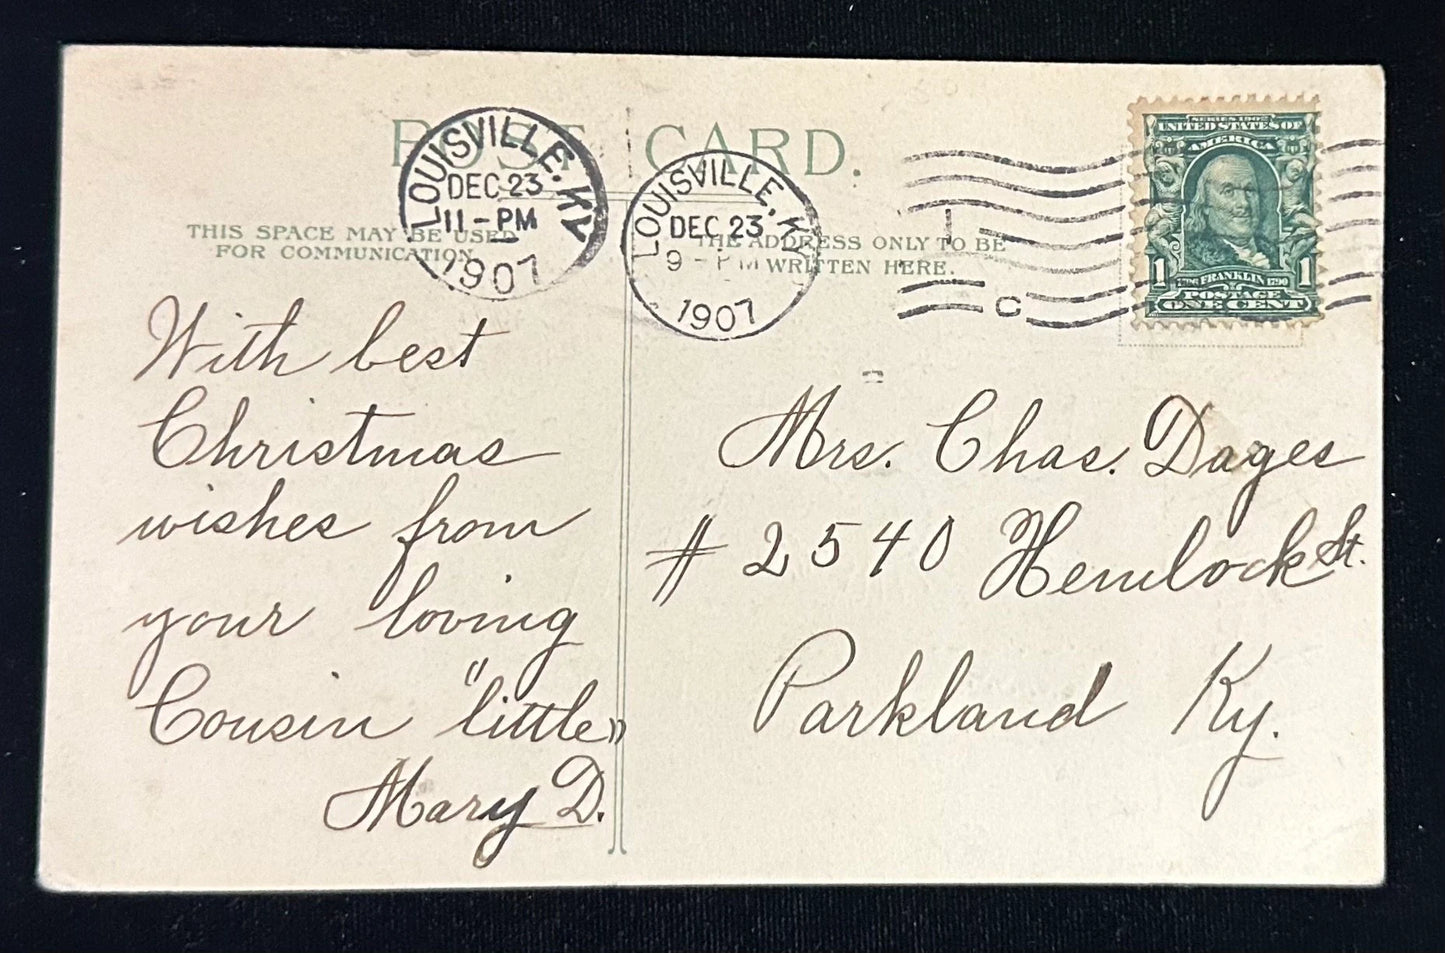 POST CARD.
LOUISVILLE, KY
DEC 23
11-PM
1907
LOUISVILLE, KY
DEC 23
9-PM
1907
C
SERIES 1902
UNITED STATES OF
AMERICA
FRANKLIN
1 1
1706 1790
POSTAGE
ONE CENT
THIS SPACE MAY BE USED
FOR COMMUNICATION.
THE ADDRESS ONLY TO BE
WRITTEN HERE.
With best
Christmas
wishes from
your loving
Cousin "little"
Mary D.
Mrs. Chas. Dages
# 2540 Hemlock St.
Parkland Ky.